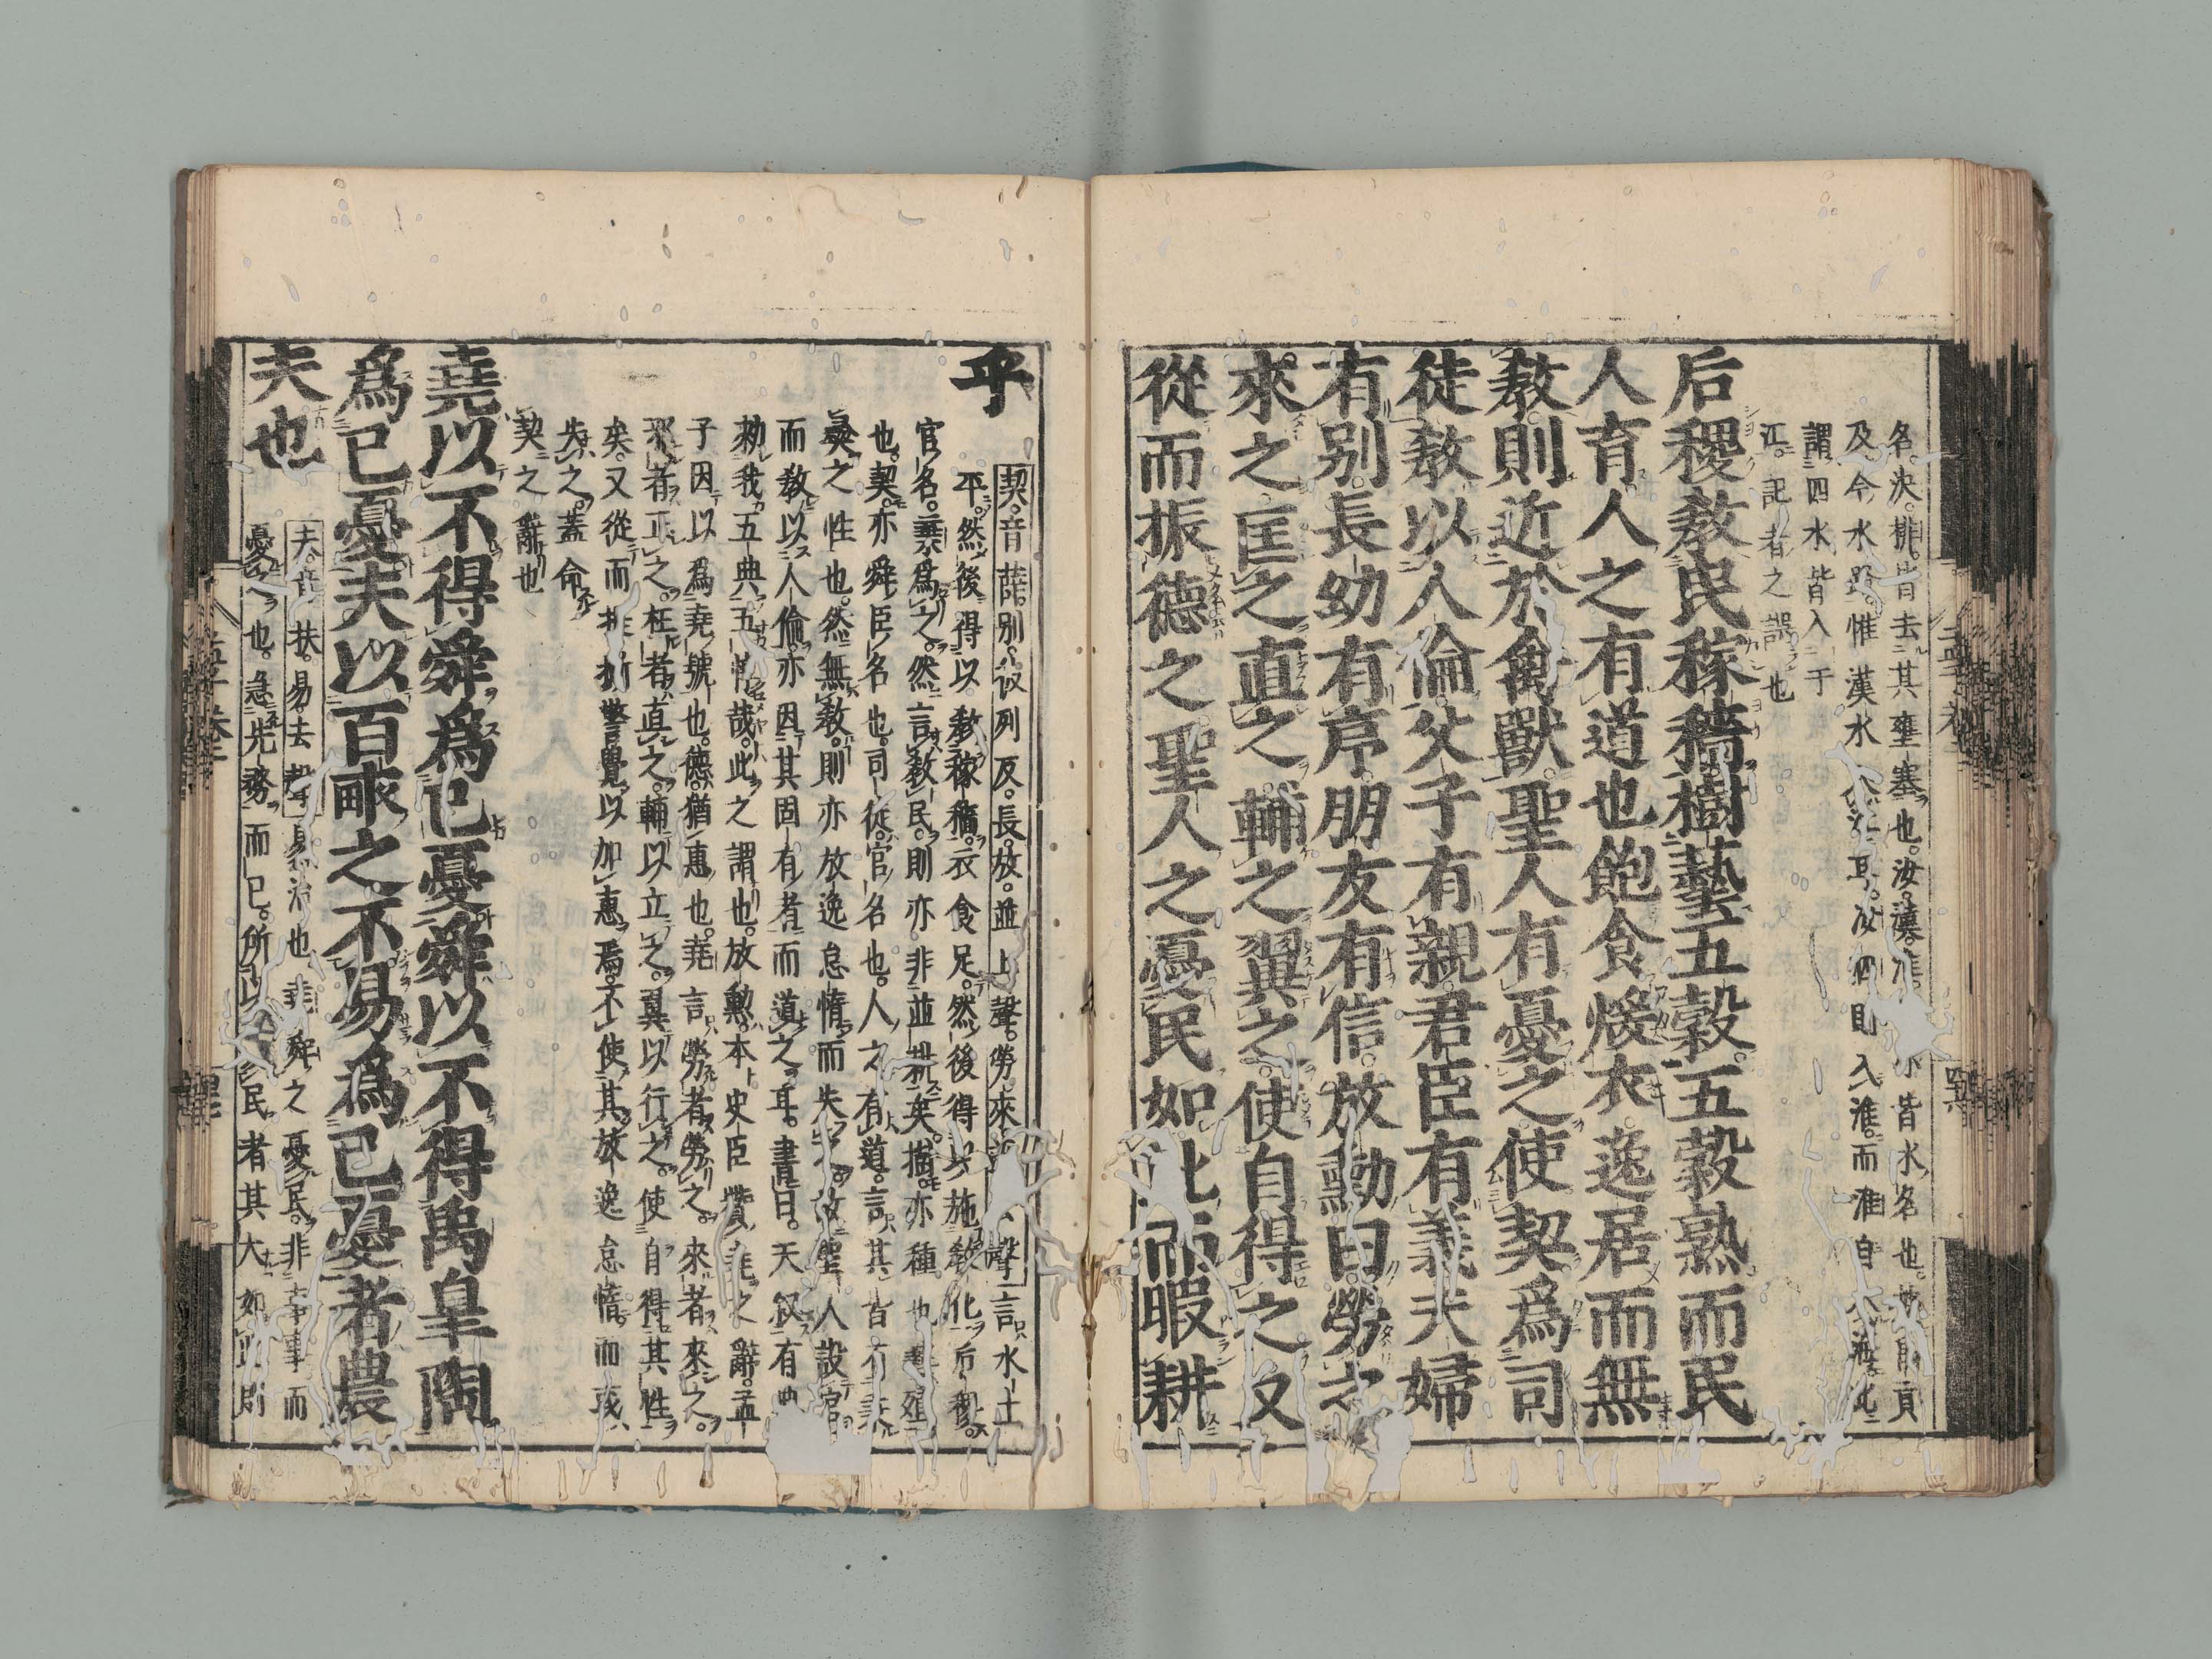 名決排皆去其壅塞也汝漢淮泗亦皆水名也據禹貢
及今水路惟漢水入江耳汝泗則入淮而淮自入海此
謂四水皆入于
江記者之誤也
后稷教民稼穡樹藝五穀五穀熟而民
人育人之有道也飽食煖衣逸居而無
教則近於禽獸聖人有憂之使契爲司
徒教以人倫父子有親君臣有義夫婦
有別長幼有序朋友有信放勳曰勞之
來之匡之直之輔之翼之使自得之又
從而振德之聖人之憂民如此而暇耕
乎
契音薛別彼列反長放並上聲勞來 聲 言水土
平然後得以教稼穡衣食足然後得以施教化后稷
官名棄爲之然言教民則亦非並耕矣樹亦種也藝殖
也契亦舜臣名也司徒官名也人之有道言其皆有秉
彝之性也然無教則亦放逸怠惰而失之故聖人設官
而教以人倫亦因其固有者而道之耳書曰天叙有典
勑我五典五惇哉此之謂也放勳本史臣贊堯之辭孟
子因以爲堯號也德猶惠也堯言勞者勞之來者來之
邪者正之枉者直之輔以立之翼以行之使自得其性
矣又從而提撕警覺以加惠焉不使其放逸怠惰而或
失之蓋命
契之辭也
堯以不得舜爲己憂舜以不得禹皐陶
爲己憂夫以百畝之不易爲己憂者農
夫也
夫音扶易去聲 易治也堯舜之憂民非事事而
憂之也急先務而已所以憂民者其大如此則